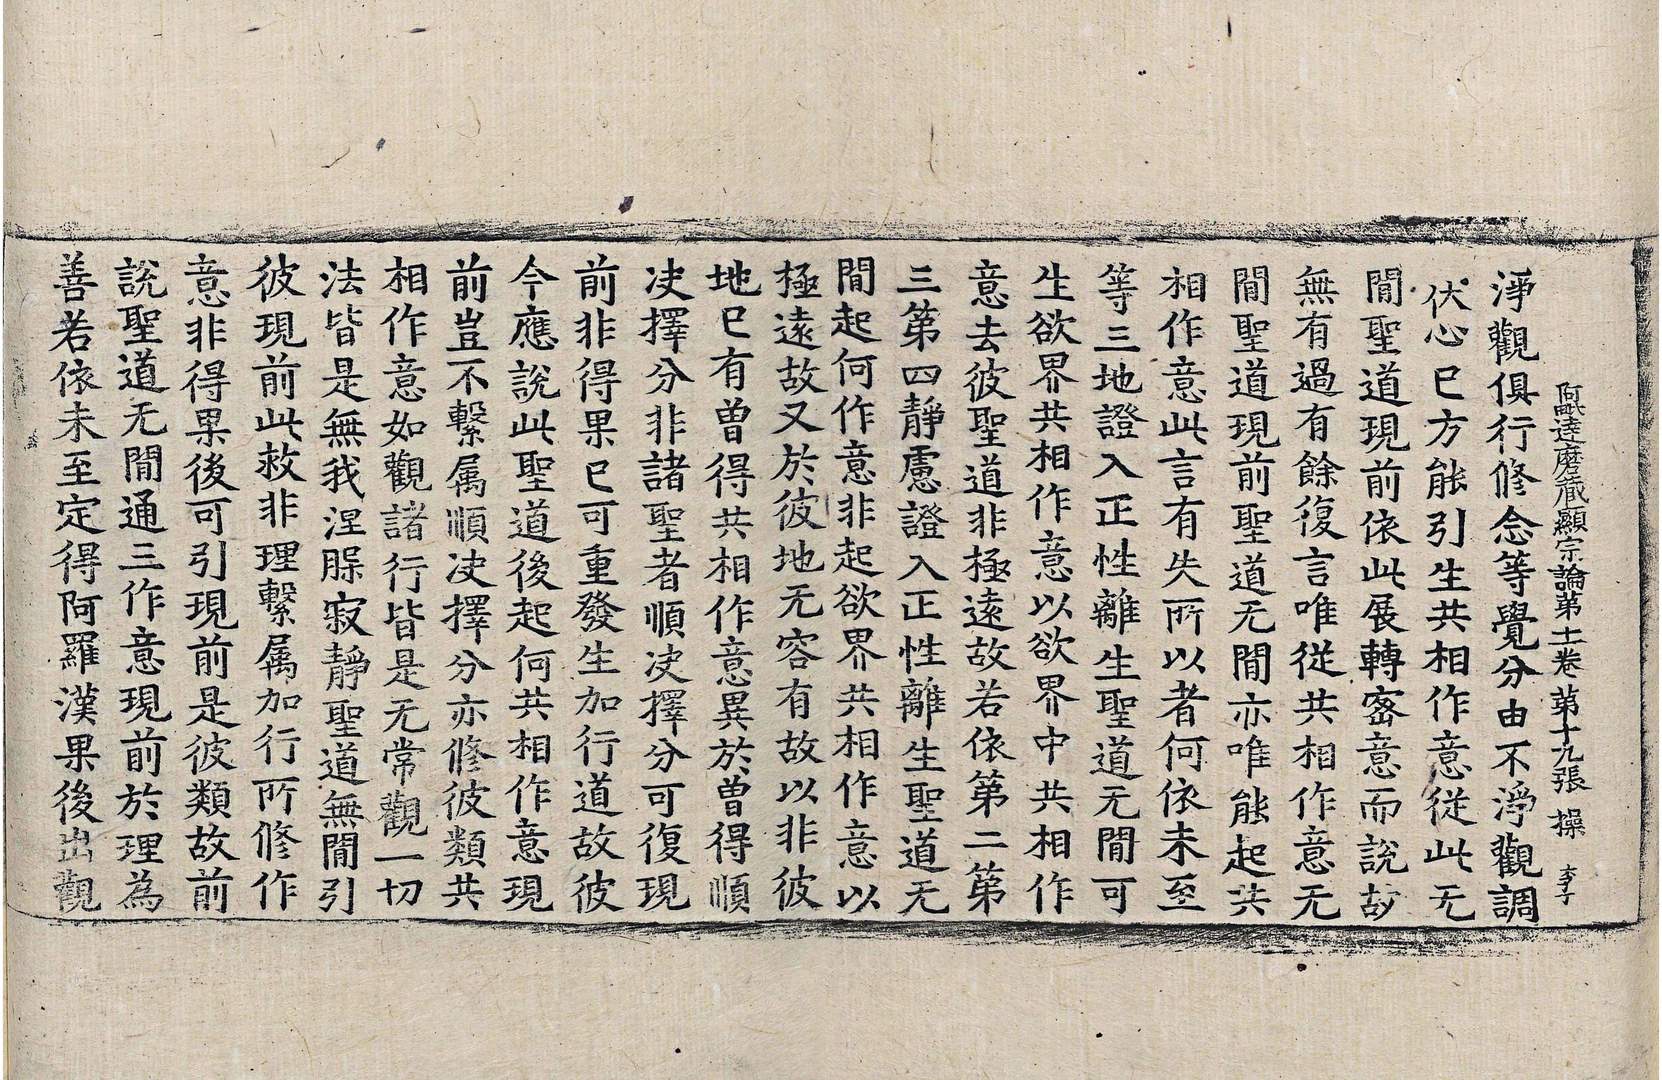 阿毗達磨藏顯宗論第十一卷 第十九張 操 李子
淨觀俱行修念等覺分由不淨觀調
伏心已方能引生共相作意從此无
閒聖道現前依此展轉密意而說故
無有過有餘復言唯從共相作意无
閒聖道現前聖道无閒亦唯能起共
相作意此言有失所以者何依未至
等三地證入正性離生聖道无閒可
生欲界共相作意以欲界中共相作
意去彼聖道非極遠故若依第二第
三第四靜慮證入正性離生聖道无
閒起何作意非起欲界共相作意以
極遠故又於彼地无容有故以非彼
地已有曾得共相作意異於曾得順
决擇分非諸聖者順决擇分可復現
前非得果已可重發生加行道故彼
今應說此聖道後起何共相作意現
前豈不繫属順决擇分亦修彼類共
相作意如觀諸行皆是无常觀一切
法皆是無我涅槃寂靜聖道無閒引
彼現前此救非理繫属加行所修作
意非得果後可引現前是彼類故前
說聖道无閒通三作意現前於理為
善若依未至定得阿羅漢果後出觀